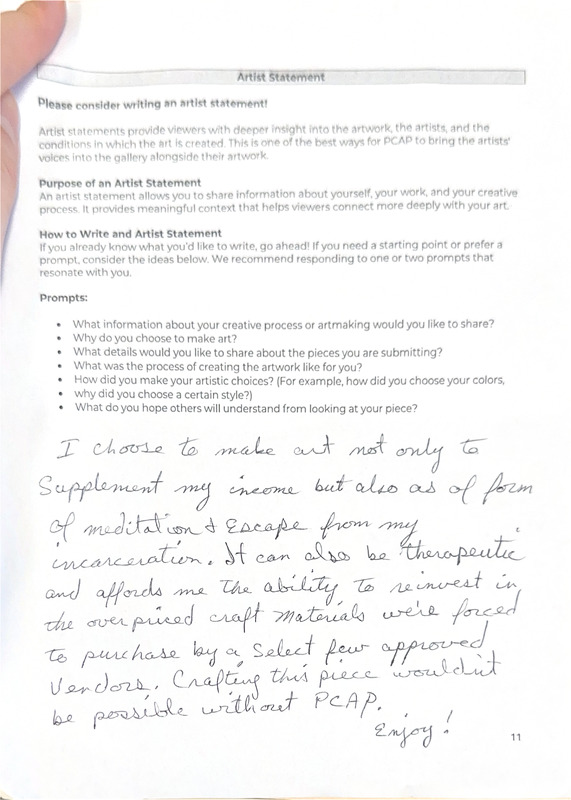 Artist Statement
Please consider writing an artist statement!
Artist statements provide viewers with deeper insight into the artwork, the artists, and the
conditions in which the art is created. This is one of the best ways for PCAP to bring the artists'
voices into the gallery alongside their artwork.
Purpose of an Artist Statement
An artist statement allows you to share information about yourself, your work, and your creative
process. It provides meaningful context that helps viewers connect more deeply with your art.
How to Write and Artist Statement
If you already know what you'd like to write, go ahead! If you need a starting point or prefer a
prompt, consider the ideas below. We recommend responding to one or two prompts that
resonate with you.
Prompts:
• What information about your creative process or artmaking would you like to share?
• Why do you choose to make art?
• What details would you like to share about the pieces you are submitting?
• What was the process of creating the artwork like for you?
• How did you make your artistic choices? (For example, how did you choose your colors,
• why did you choose a certain style?)
• What do you hope others will understand from looking at your piece?
I choose to make art not only to
Supplement my income but also as of form
of meditation & Escape from my
incarceration. It can also be therapeutic
and affords me the ability to reinvest in
the overpriced craft materials we're forced
to purchase by a Select few approved
Vendors. Crafting this piece wouldn't
be possible without PCAP.
Enjoy!
11